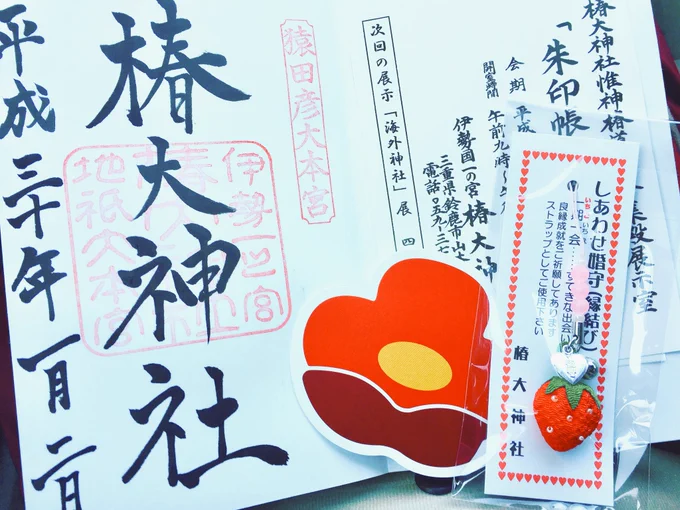 椿大神社
平成三十年一月二日
猿田彦大本宮
伊勢一之宮
地祇大本宮
次回の展示「海外神社」展
椿大神社惟神
「朱印帳
会期 平成
開室時間 午前九時
伊勢国一の宮 椿大神
三重県鈴鹿市山
電話〇五九ー三七
展示室
しあわせ婚守(縁結び)
すてきな出会い
良縁成就をご祈願してあります
ストラップとしてご使用下さい
椿大神社